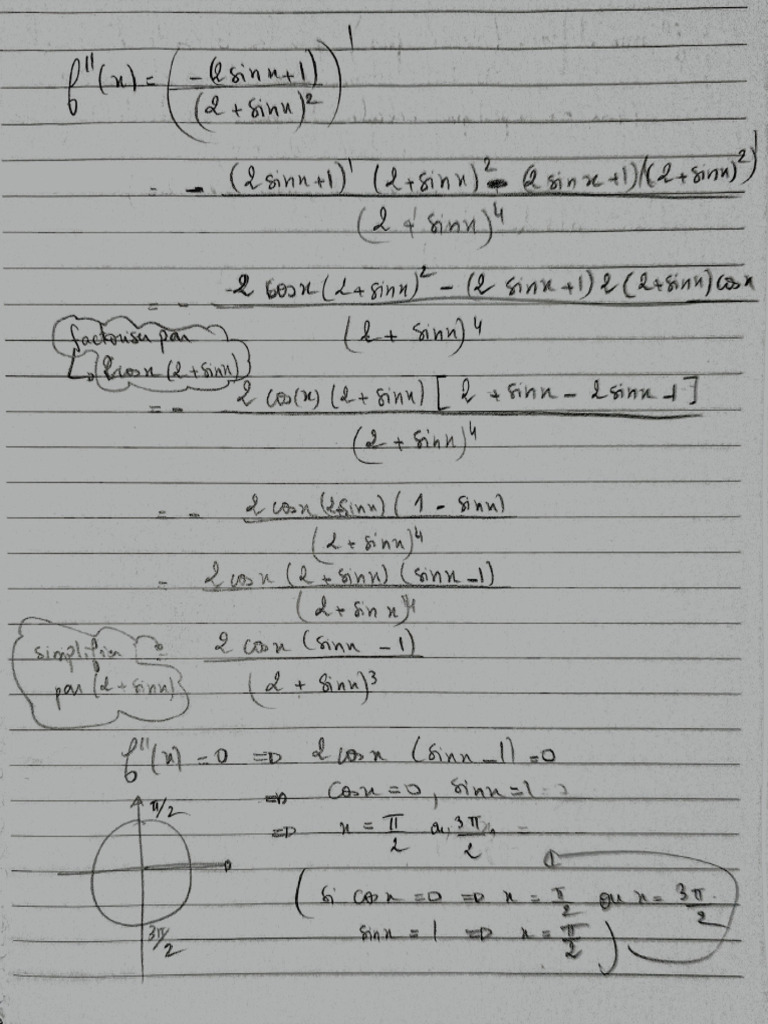 f''(x) = (-(2sinx+1) / (2+sinx)²)'
= - (2sinx+1)' (2+sinx)² - (2sinx+1)(2+sinx)²)' / (2+sinx)⁴
= - -2cosx(2+sinx)² - (2sinx+1)2(2+sinx)cosx / (2+sinx)⁴
factoriser par
↳ 2cosx(2+sinx)
= - 2cos(x)(2+sinx)[2+sinx-2sinx-1] / (2+sinx)⁴
= - 2cosx(2sinx)(1-sinx) / (2+sinx)⁴
= 2cosx(2+sinx)(sinx-1) / (2+sinx)⁴
simplifier
par (2+sinx)
= 2cosx(sinx-1) / (2+sinx)³
f''(x) = 0 => 2cosx(sinx-1) = 0
=> cosx=0, sinx=1
=> x = π/2 ou 3π/2
π/2
3π/2
(si cosx=0 => x = π/2 ou x = 3π/2
sinx = 1 => x = π/2)